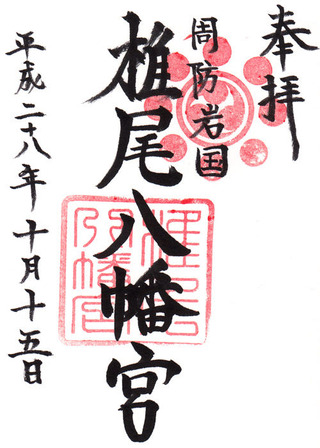 奉拝
周防岩国
椎尾八幡宮
平成二十八年十月十五日
椎尾
八幡宮